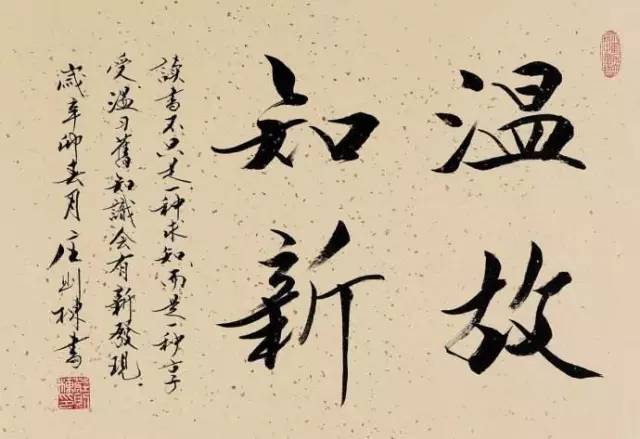 温故
知新
讀書不只是一种求知而是一种享
受温习舊知識会有新發現
歲辛卯春月庄则棟書